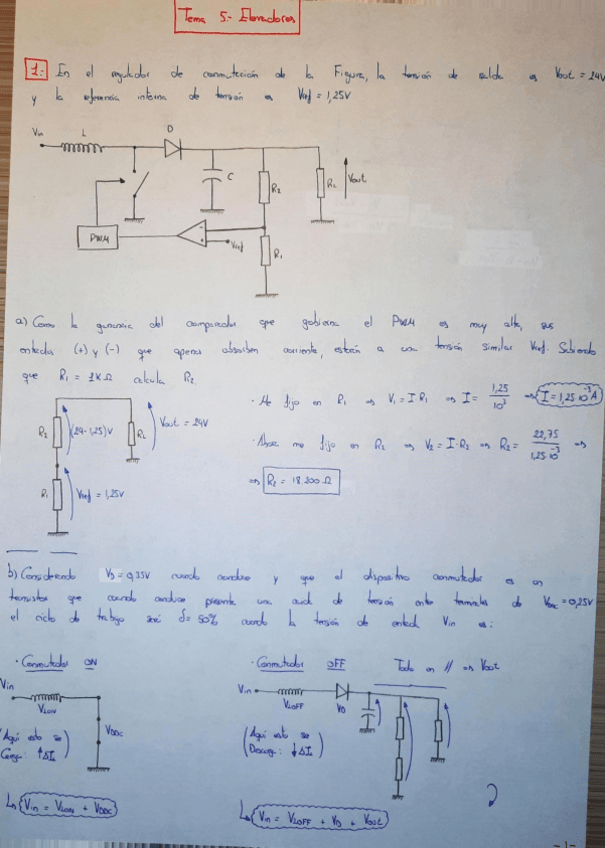 Tema 5.- Elevadores
1.- En el regulador de conmutación de la Figura, la tensión de salida es Vout = 24V
y la referencia interna de tensión es Vref = 1,25V
Vin L D
C R2 RL Vout
PWM + - Vref R1
a) Como la ganancia del comparador que gobierna el PWM es muy alta, sus
entradas (+) y (-) que apenas absorben corriente, estarán a una tensión similar Vref. Sabiendo
que R1 = 1KΩ calcula R2
· Me fijo en R1 ⇒ V1 = I·R1 ⇒ I = 1,25 / 10³ ⇒ I = 1,25·10⁻³A
R2 (24-1,25)V RL Vout = 24V
· Ahora me fijo en R2 ⇒ V2 = I·R2 ⇒ R2 = 22,75 / 1,25·10⁻³ ⇒
⇒ R2 = 18.200 Ω
R1 Vref = 1,25V
b) Considerando VD = 0,35V cuando conduce y que el dispositivo conmutador es un
transistor que cuando conduce presenta una caída de tensión entre terminales de VDDC = 0,25V
el ciclo de trabajo será δ = 50% cuando la tensión de entrada Vin es:
· Conmutador ON
Vin
VLON
VDDC
(Aquí esto se
Carga: ↑ΔIL)
↳ Vin = VLON + VDDC
· Conmutador OFF
Todo en // ⇒ Vout
Vin
VLOFF VD
(Aquí esto se
Descarga: ↓ΔI)
↳ Vin = VLOFF + VD + Vout
-1-